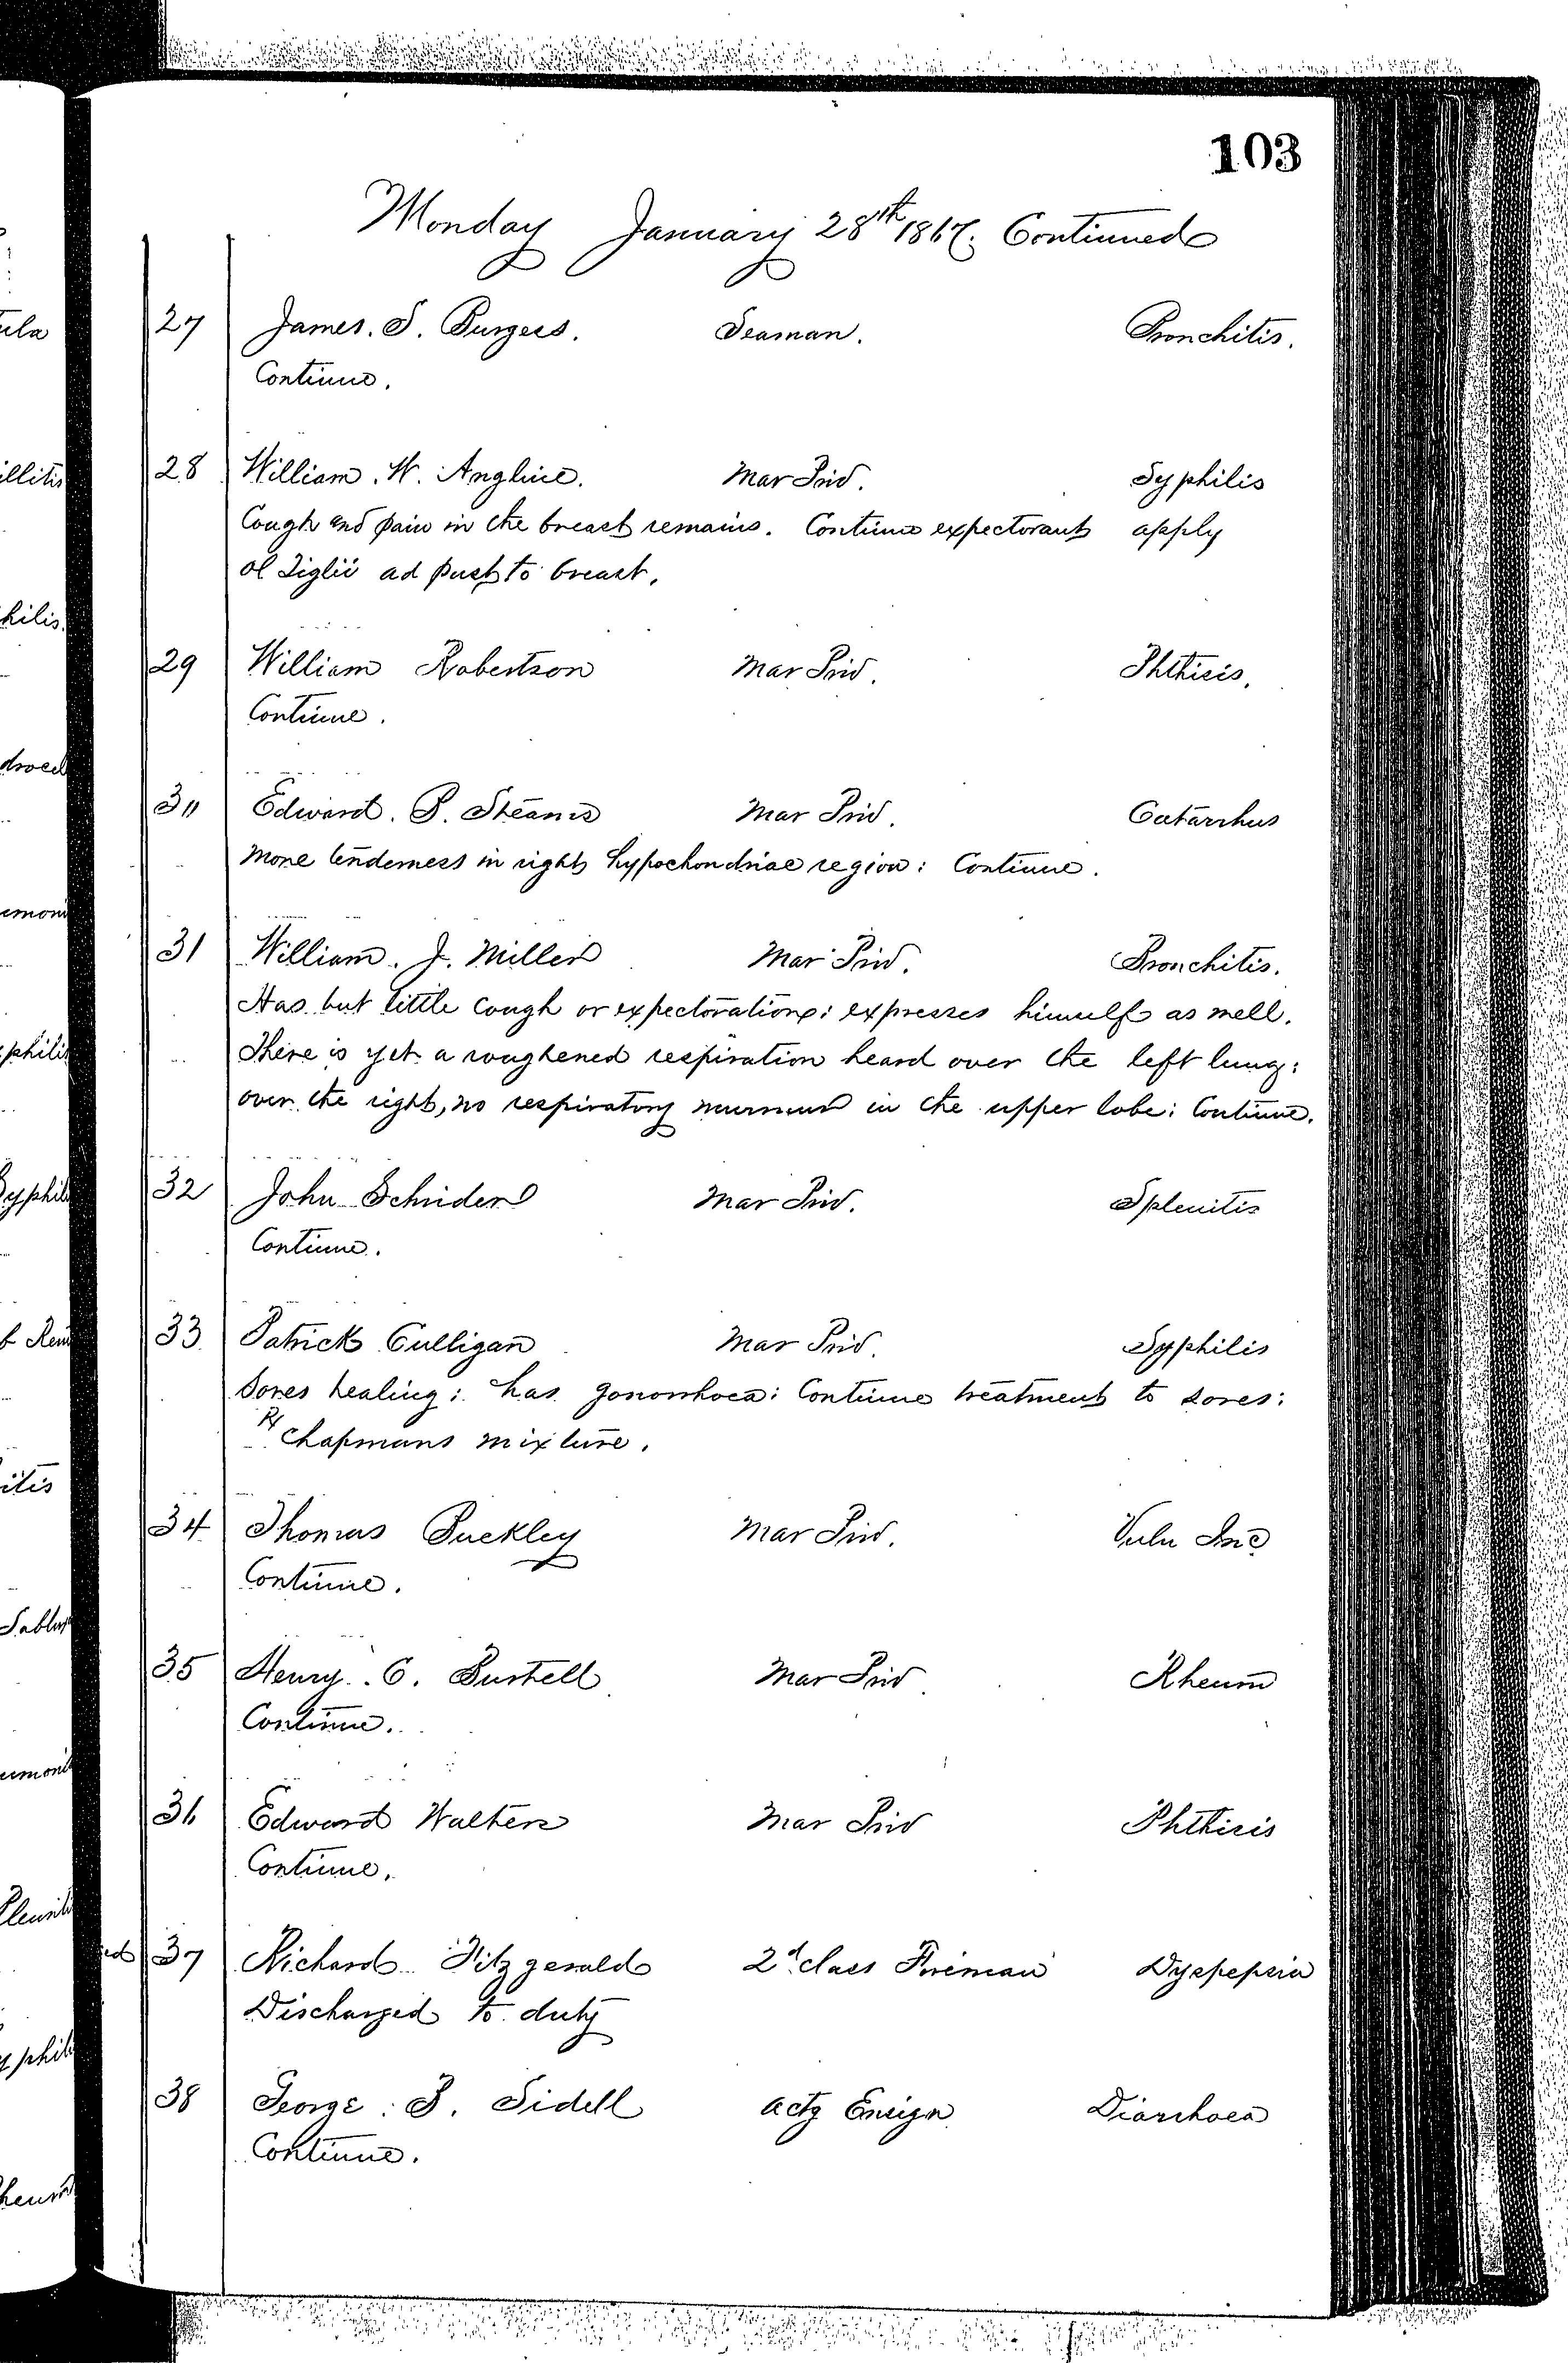 103
Monday January 28th 1867. Continued
27 James. S. Burgess. Seaman. Bronchitis.
Continue.
28 William. W. Angline. Mar Priv. Syphilis
Cough and pain in the breast remains. Continue expectorant apply
ol Tiglii ad pust to breast.
29 William Robertson Mar Priv. Phthisis.
Continue.
30 Edward. P. Stearns Mar Priv. Catarrhus
More tenderness in right hypochondriac region: Continue.
31 William. J. Miller Mar Priv. Bronchitis.
Has but little cough or expectoration: expresses himself as well.
There is yet a roughened respiration heard over the left lung:
over the right, no respiratory murmur in the upper lobe: Continue.
32 John Schrider Mar Priv. Splenitis
Continue.
33 Patrick Culligan Mar Priv. Syphilis
Sores healing: has gonorrhoea: Continue treatment to sores:
Rx Chapmans mixture.
34 Thomas Buckley Mar Priv. Vuln Inc
Continue.
35 Henry. C. Bushell Mar Priv. Rheum
Continue.
36 Edward Walters Mar Priv Phthisis
Continue.
37 Richard Fitzgerald 2d class Fireman Dyspepsia
Discharged to duty
38 George. B. Sidell actg Ensign Diarrhoea
Continue.